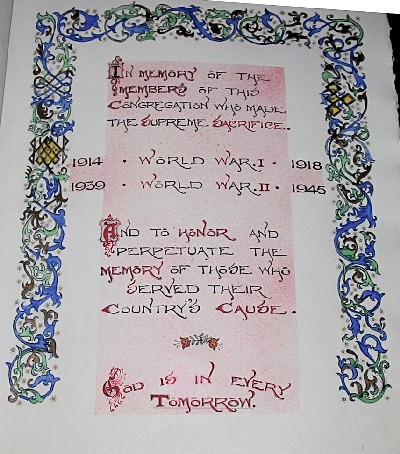 In memory of the
members of this
Congregation who made
the Supreme Sacrifice.
1914 · World War. I · 1918
1939 · World War. II · 1945
And to honor and
perpetuate the
memory of those who
served their
Country's Cause.
God is in every
Tomorrow.